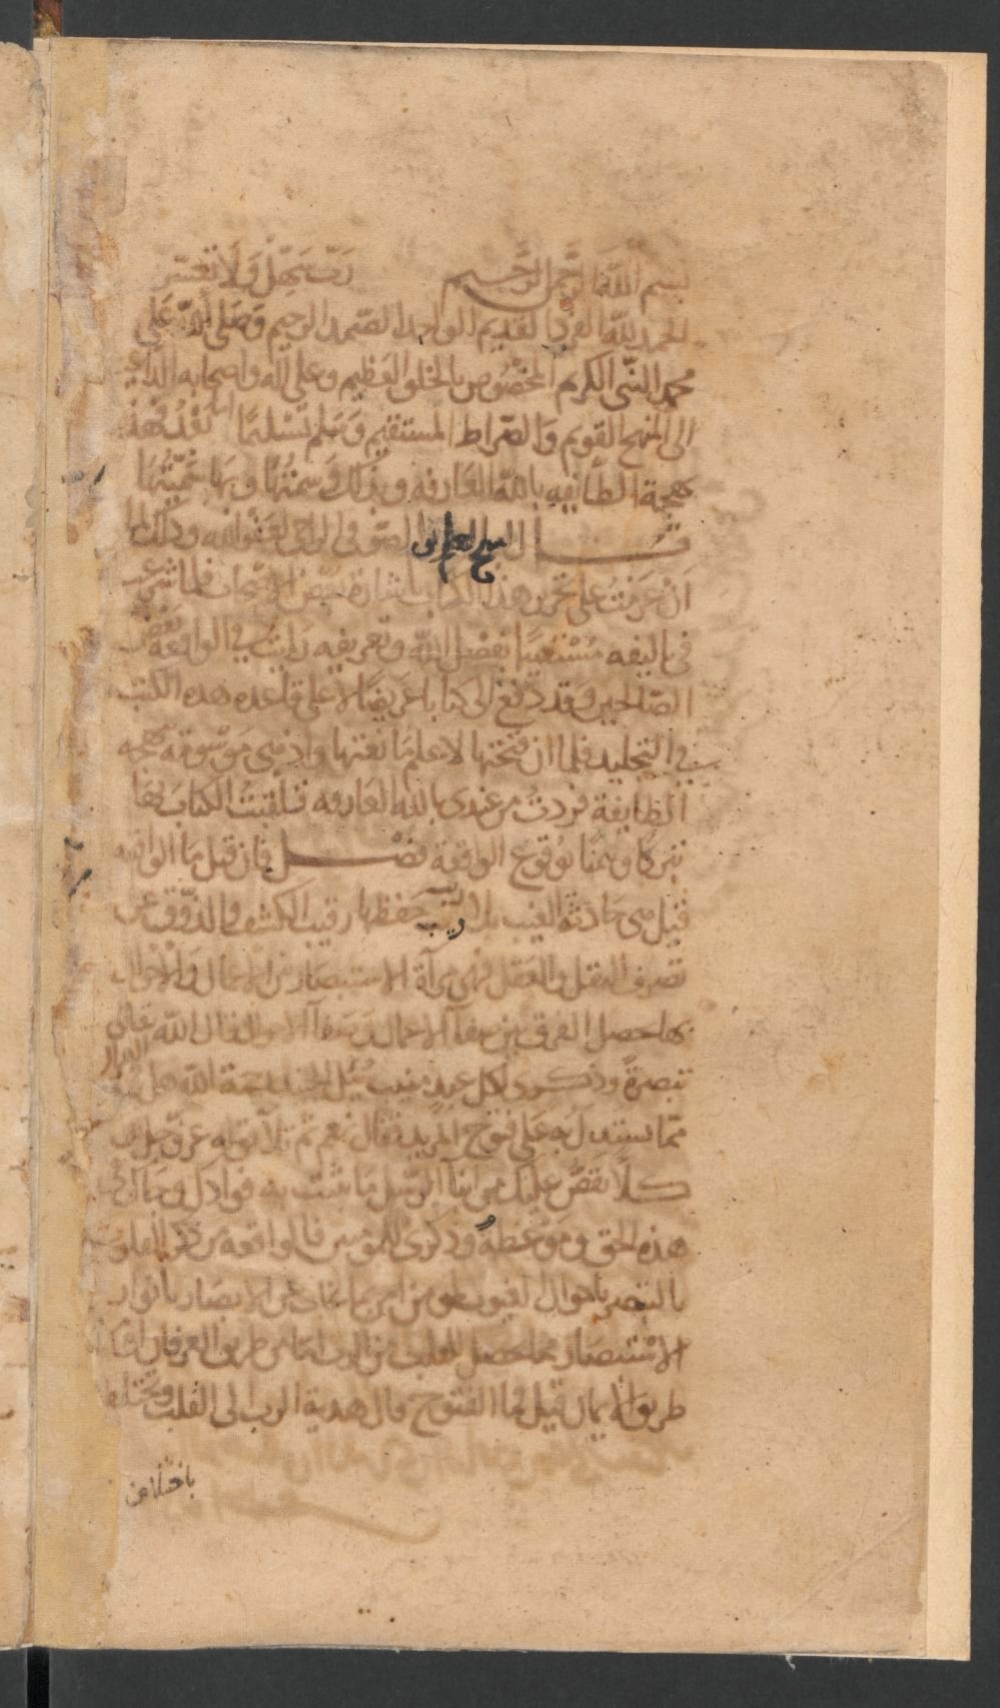 بسم الله الرحمن الرحيم رب سهل ولا تعسر
الحمد لله الفرد القديم الواحد الصمد الرحيم وصلى الله على
محمد النبي الكريم المخصوص بالخلق العظيم وعلى اله واصحابه الداعي
الى المنهج القويم والصراط المستقيم وسلم تسليما اما بعد فهذه
بهجة الطائفة بالله العارفة وبذلك وسمتها وبها سميتها
قال الشيخ الصوفي الراجي لعفو الله وذلك لما
ان عزمت على تحرير هذا الكتاب باشارة بعض الاصحاب فلما شرعت
في تاليفه مستعينا بفضل الله وتعريفه رايت في الواقعة بعض
الصالحين وقد دفع الى كتابا عريضا لا على قاعدة هذه الكتب
في التجليد فلما ان فتحتها لاعلم ما نعتها واذ هي موسوقة بهجة
الطايفة فزدت من عندي بالله العارفه فتلقبت الكتاب بها
تبركا وتيمنا بوقوع الواقعة فصل فان قيل ما الواقعة
قيل هي حادثة الغيب حفظها رقيب الكشف والذوق عن
تصرف النقل والعقل فهي مرآة الاستبصار من الاعمال والاحوال
بها حصل الفرق بين صفاء الاعمال وصفاء الاحوال قال الله تعالى
تبصرة وذكرى لكل عبد منيب سئل الجنيد رحمة الله هل
مما يستدل به على فتوح المريد فقال نعم ثم تلا قوله عز وجل
كلا نقص عليك من انباء الرسل ما نثبت به فؤادك وجاءك في
هذه الحق وموعظة وذكرى للمؤمنين فالواقعة من ذكر
بالتبصر باحوال الغيوب الابصار بانوار
الاستبصار مما حصل للقلب من الرب اما من طريق العرفان
طريق الايمان قيل فما الفتوح قال هدية الرب الى القلب وتختلف
باختلاف